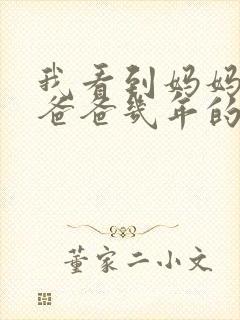 我看到妈妈
爸爸几年的
董家二小文